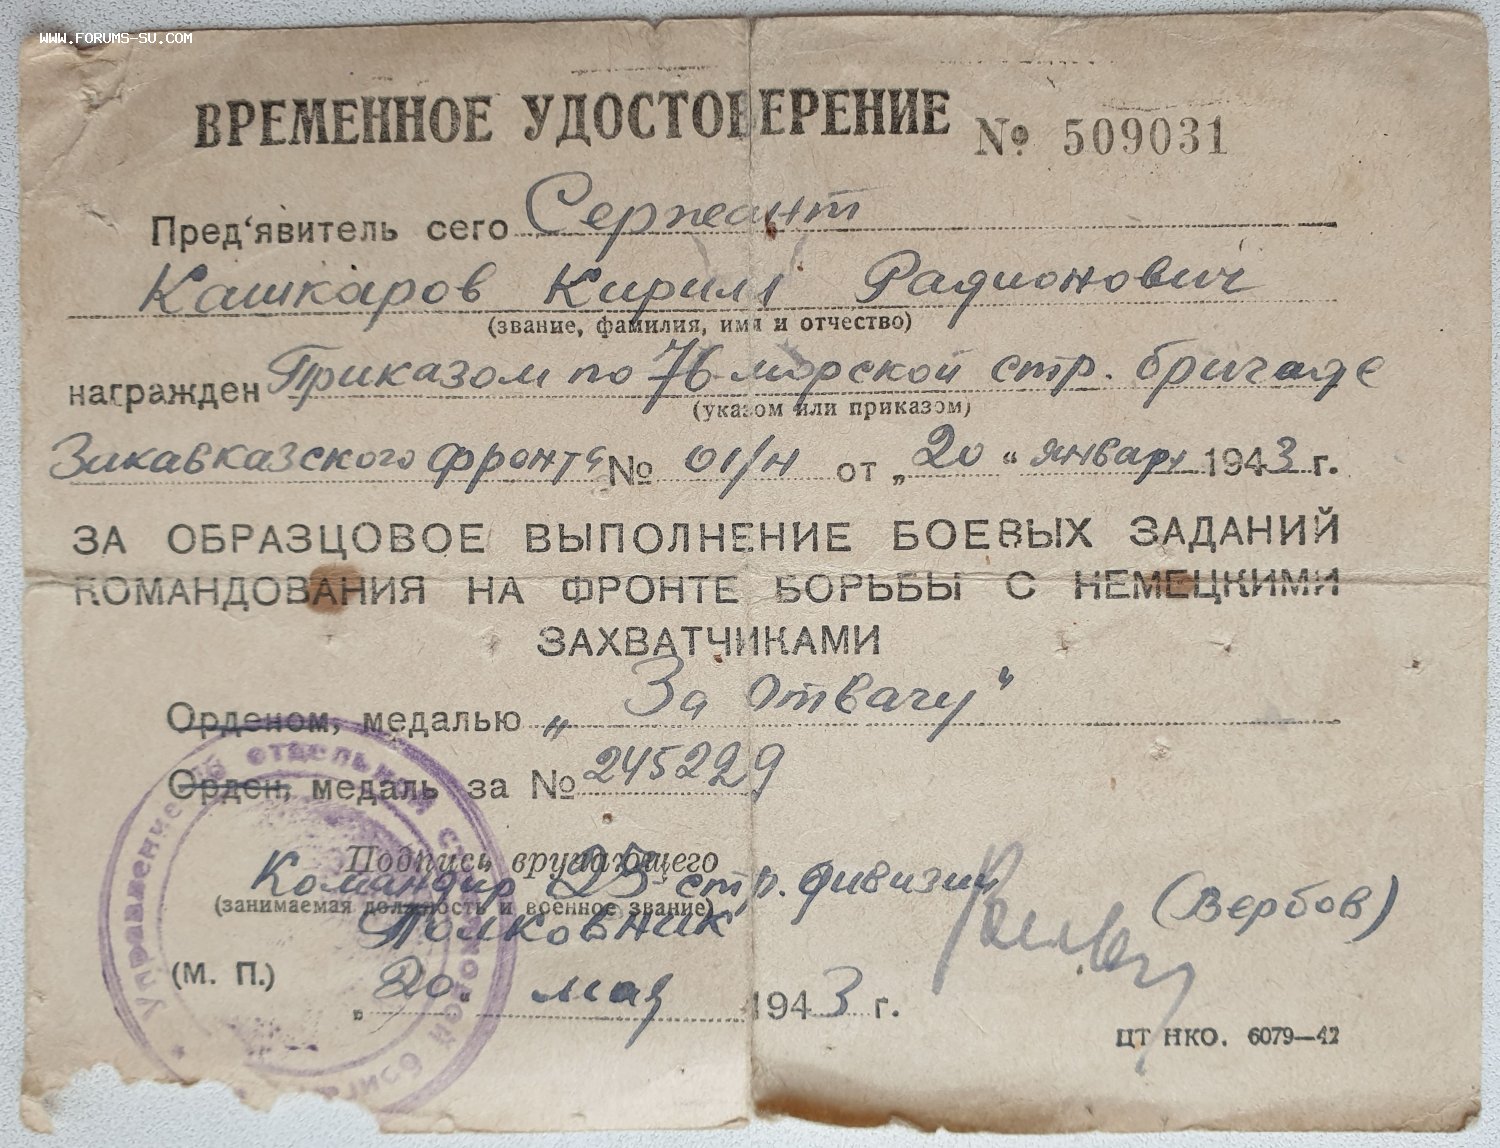 WWW.FORUMS-SU.COM
ВРЕМЕННОЕ УДОСТОВЕРЕНИЕ № 509031
Пред'явитель сего Сержант
Кашкаров Кирилл Радионович
(звание, фамилия, имя и отчество)
награжден Приказом по 76 морской стр. бригаде
(указом или приказом)
Закавказского фронта № 01/н от „20“ января 1943 г.
ЗА ОБРАЗЦОВОЕ ВЫПОЛНЕНИЕ БОЕВЫХ ЗАДАНИЙ
КОМАНДОВАНИЯ НА ФРОНТЕ БОРЬБЫ С НЕМЕЦКИМИ
ЗАХВАТЧИКАМИ
Орденом, медалью „За отвагу"
Орден, медаль за № 245229
Подпись вручающего
Командир 23 стр. дивизии (Вербов)
(занимаемая должность и военное звание)
Полковник
(М. П.)
„20. мая 1943 г.
ЦТ НКО. 6079—42
Управление отдельной стрелковой бригады